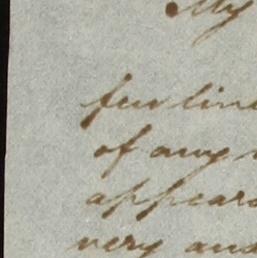 My
few lin
of any
appear
very an